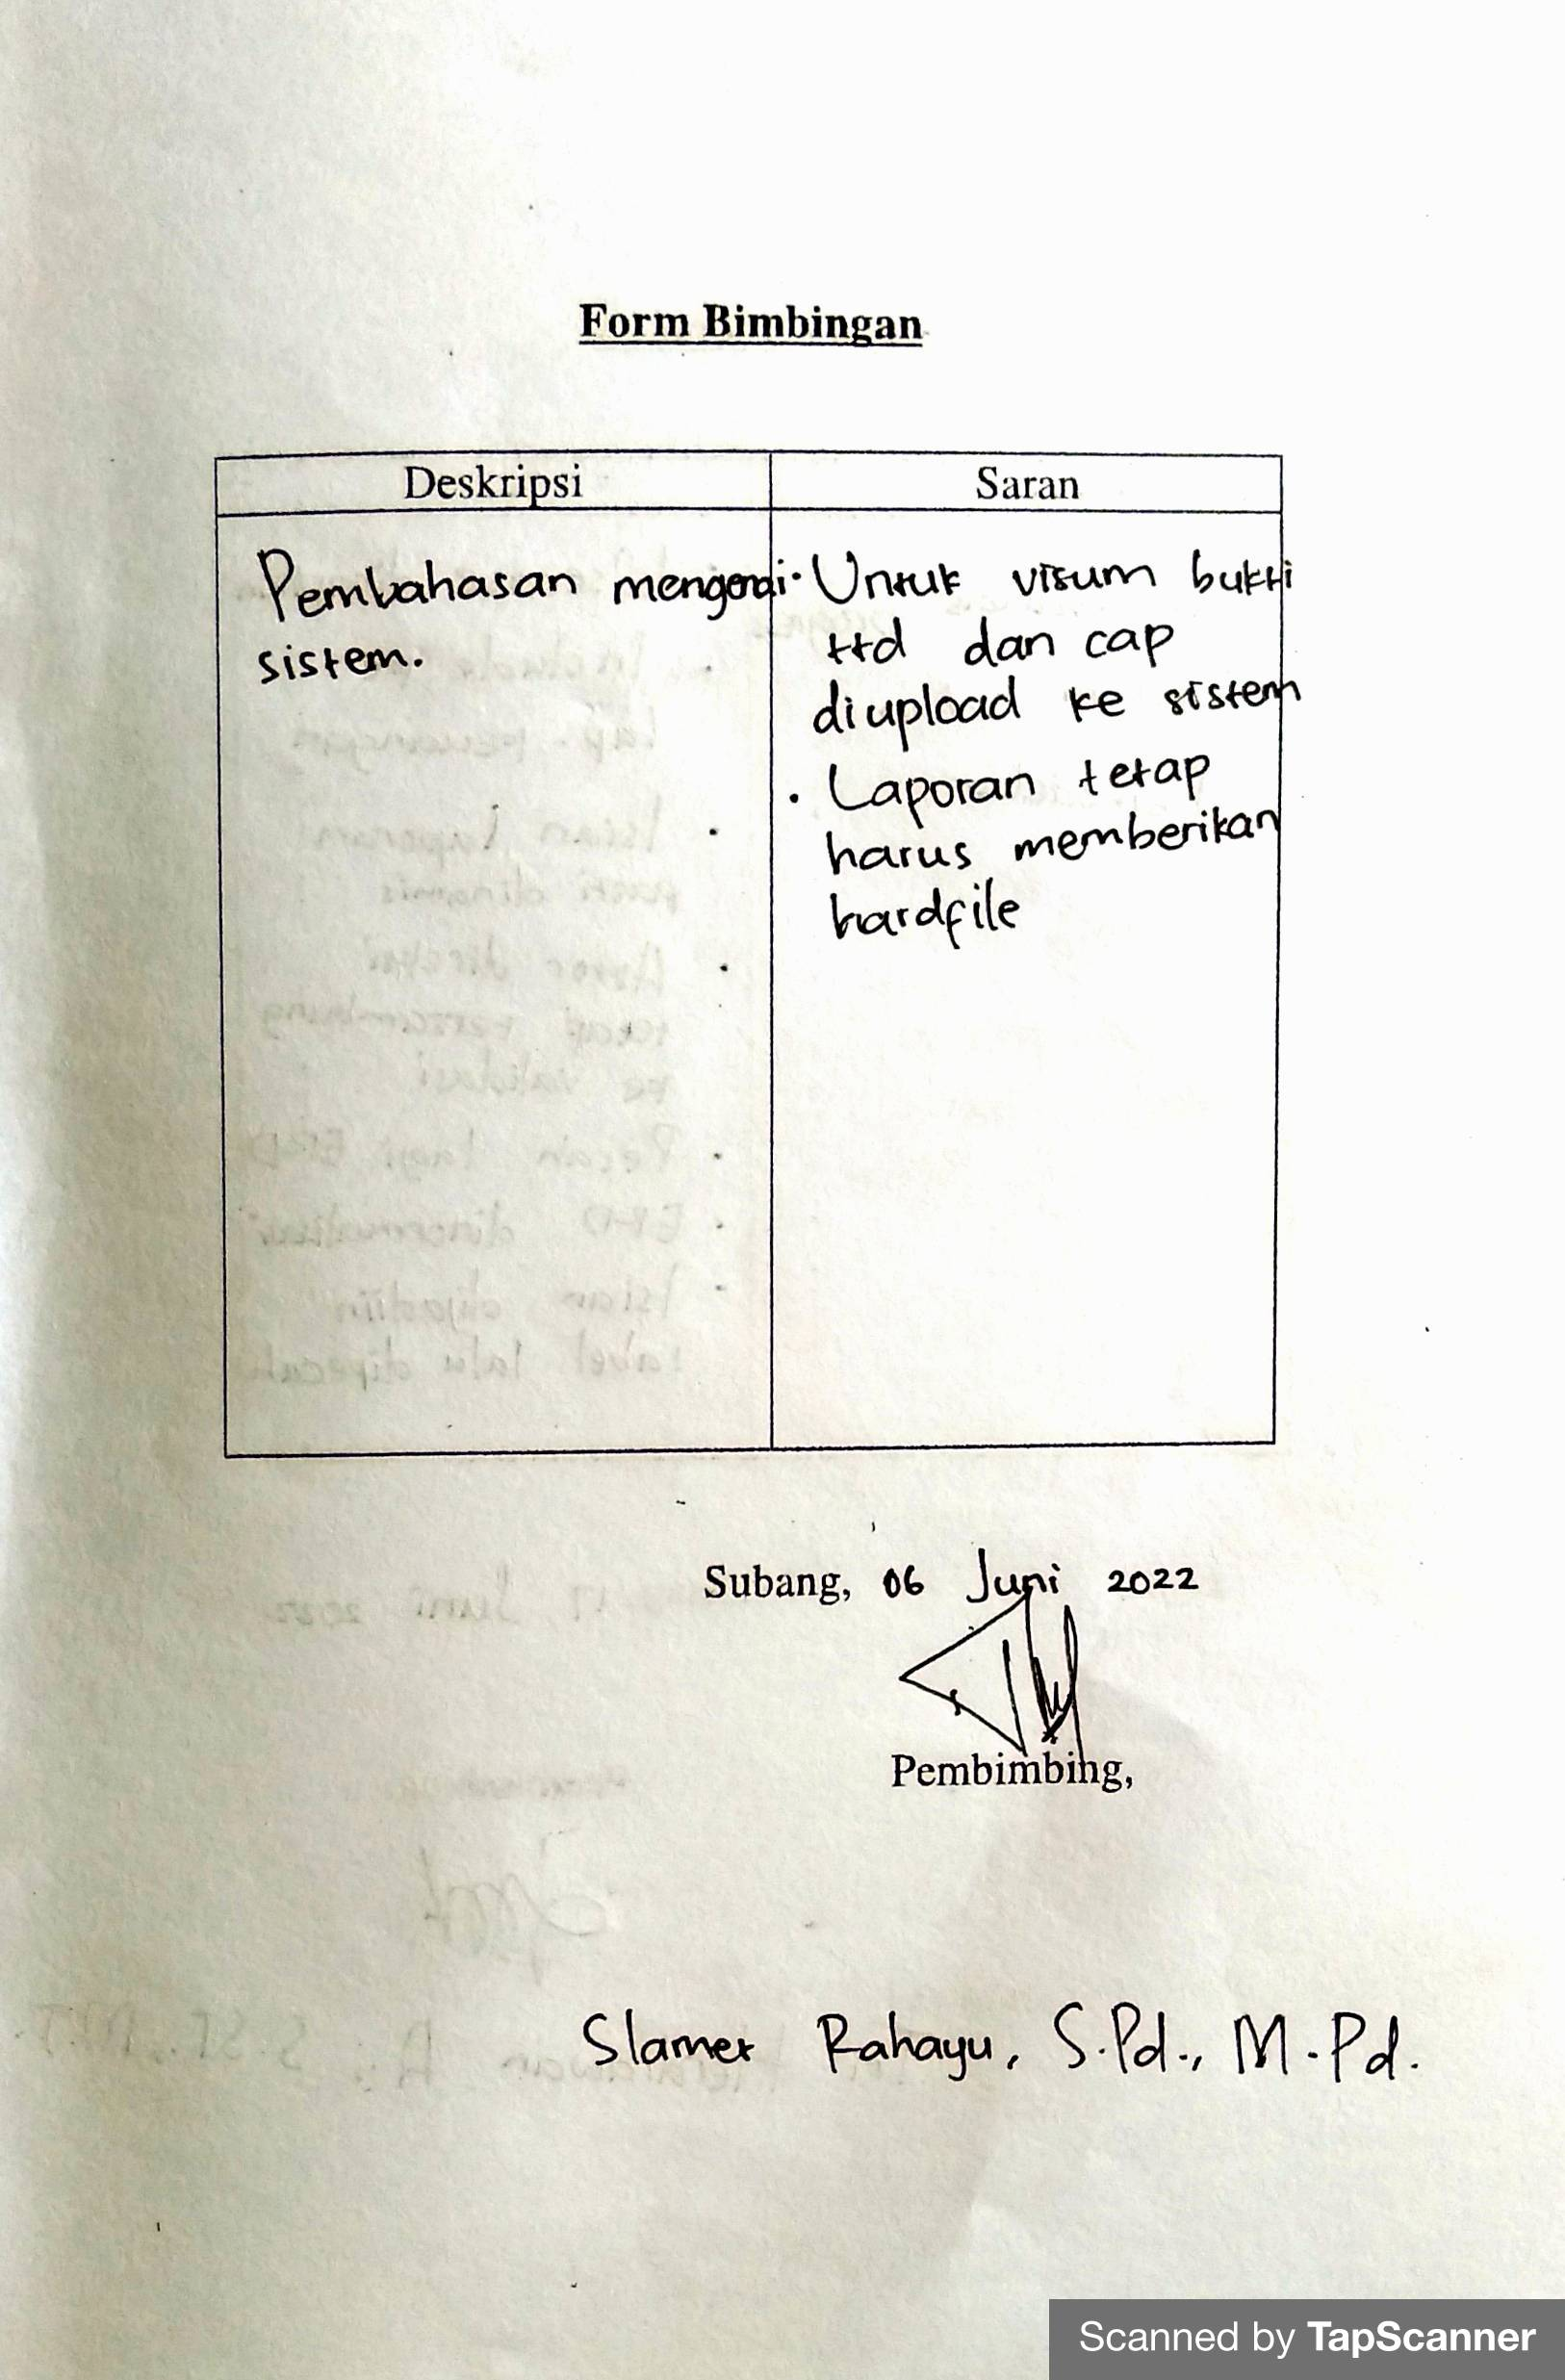 Form Bimbingan
Deskripsi
Saran
Pembahasan mengenai
sistem.
· Untuk visum bukti
ttd dan cap
diupload ke sistem
· Laporan tetap
harus memberikan
hardfile
Subang, 06 Juni 2022
Pembimbing,
Slamet Rahayu, S.Pd., M.Pd.
Scanned by TapScanner